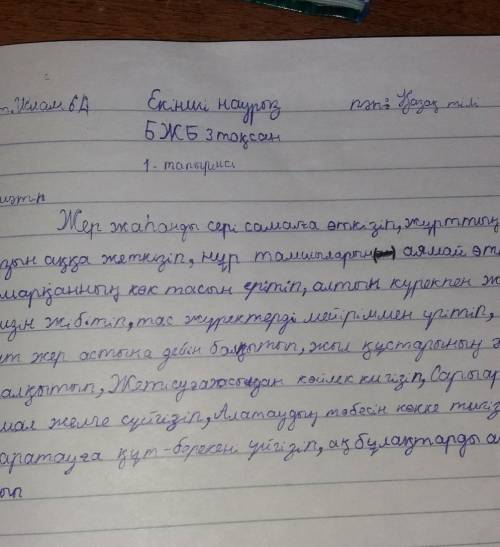 Ислам 6Д Екінші наурыз пән: Қазақ тілі
БЖБ 3 тоқсан
1- тапсырма
мәтін
Жер жаһанды сері самалға өткізіп, жұрттың
аққа жеткізіп, нұр тамшыларын аямай
Самарқанның көк тасын ерітіп, алтын күрекпен
жібітіп, тас жүректерді мейіріммен ерітіп,
жер астына дейін балқытып, жыл құстарының
шалқытып, Жетісуға жасылдан көйлек кигізіп, Сарыарқа
самал желге сүйгізіп, Алатаудың төбесін көкке тигізіп
Қаратауға құт-береке үйгізіп, ақ бұлақтарды